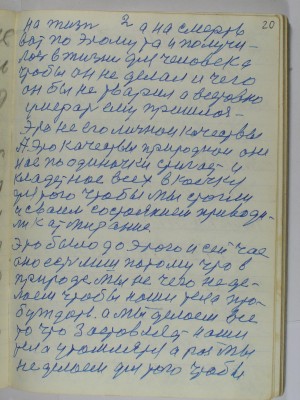 на жизнь 2 а на смерть 20
вот по этому та и получи-
лось в жизни для человека
чтобы он не делал и чего
он бы не творил а все равно
умерать ему пришлось.
Это не его личное качество
А это качества природное они
нас по одиночки стигает и
кладет нас всех в кочку
для того чтобы мы стояли
и своем состоянием приводи-
ли к отмиранию
Это было до этого и сейчас
оно с нами потому что в
природе мы не чего не де-
лаем чтобы наши тела про-
буждать. а мы делаем все
то что заставляет наши
тела утомлять а раз мы
не делаем для того чтобы